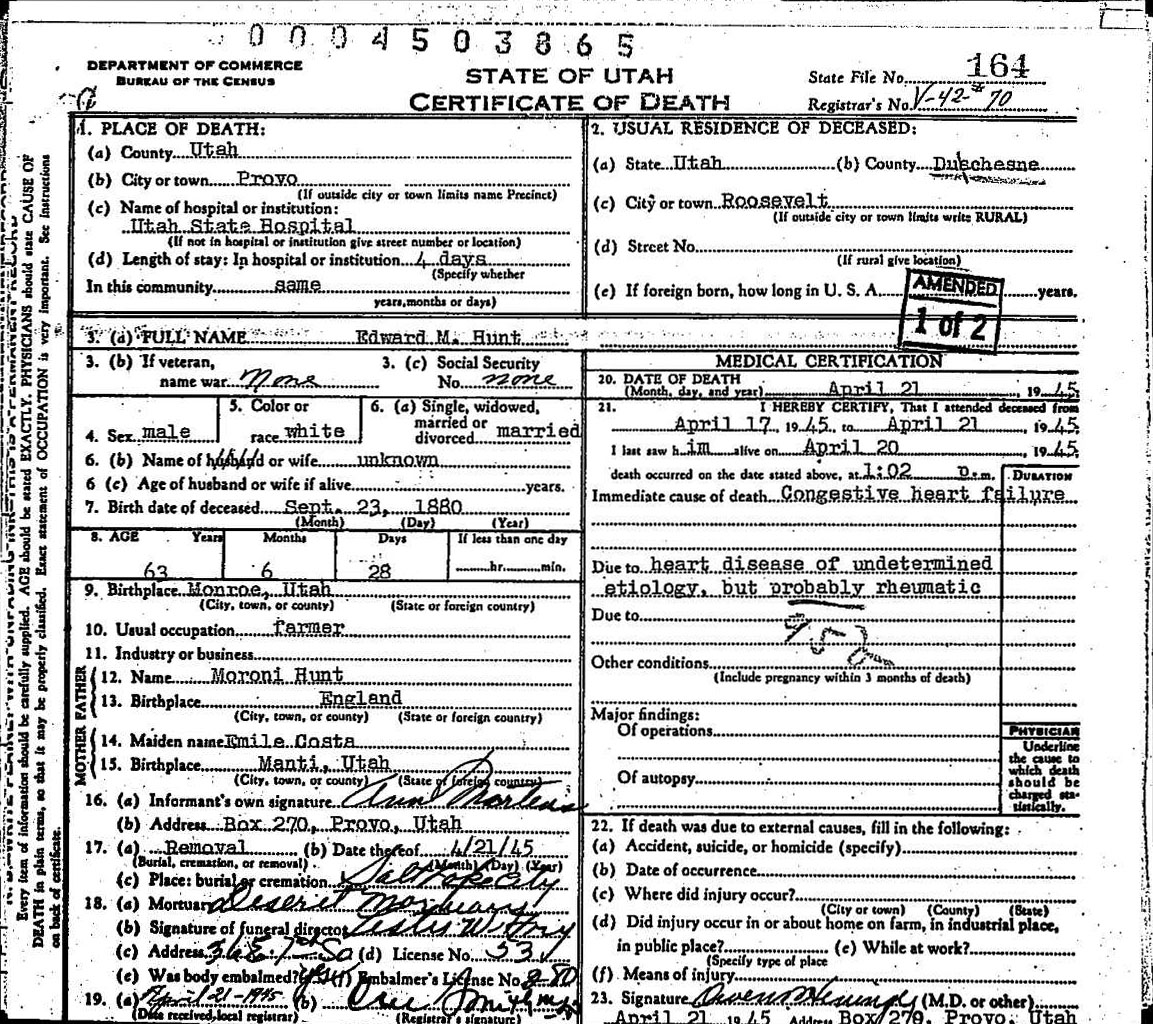 0004503865
DEPARTMENT OF COMMERCE
BUREAU OF THE CENSUS
STATE OF UTAH
CERTIFICATE OF DEATH
State File No. 164
Registrar's No. V-42-#70
1. PLACE OF DEATH:
(a) County Utah
(b) City or town Provo
(If outside city or town limits name Precinct)
(c) Name of hospital or institution:
Utah State Hospital
(If not in hospital or institution give street number or location)
(d) Length of stay: In hospital or institution 4 days
(Specify whether
In this community same
years, months or days)
2. USUAL RESIDENCE OF DECEASED:
(a) State Utah (b) County Duschesne
(c) City or town Roosevelt
(If outside city or town limits write RURAL)
(d) Street No.
(If rural give location)
(e) If foreign born, how long in U. S. A. years.
AMENDED
1 of 2
3. (a) FULL NAME Edward M. Hunt
3. (b) If veteran,
name war None
3. (c) Social Security
No. none
4. Sex male
5. Color or
race white
6. (a) Single, widowed,
married or
divorced married
6. (b) Name of husband or wife unknown
6 (c) Age of husband or wife if alive years.
7. Birth date of deceased Sept. 23, 1880
(Month) (Day) (Year)
8. AGE Years Months Days If less than one day
63 6 28 hr. min.
9. Birthplace Monroe, Utah
(City, town, or county) (State or foreign country)
10. Usual occupation farmer
11. Industry or business
FATHER
12. Name Moroni Hunt
13. Birthplace England
(City, town, or county) (State or foreign country)
MOTHER
14. Maiden name Emile Costa
15. Birthplace Manti, Utah
(City, town, or county) (State or foreign country)
16. (a) Informant's own signature Ann
(b) Address Box 270, Provo, Utah
17. (a) Removal (b) Date thereof 4/21/45
(Burial, cremation, or removal) (Month) (Day) (Year)
(c) Place: burial or cremation Salt Lake City
18. (a) Mortuary Deseret Mortuary
(b) Signature of funeral director
(c) Address 36 E 7th So (d) License No. 53
(e) Was body embalmed? yes (f) Embalmer's License No. 280
19. (a) April-21-1945 (b)
(Date received local registrar) (Registrar's signature)
MEDICAL CERTIFICATION
20. DATE OF DEATH
(Month, day, and year) April 21, 1945
21. I HEREBY CERTIFY, That I attended deceased from
April 17, 1945, to April 21, 1945
I last saw him alive on April 20 1945
death occurred on the date stated above, at 1:02 p.m.
DURATION
Immediate cause of death Congestive heart failure
Due to heart disease of undetermined
etiology, but probably rheumatic
Due to
952
Other conditions
(Include pregnancy within 3 months of death)
Major findings:
Of operations
Of autopsy
PHYSICIAN
Underline
the cause to
which death
should be
charged sta-
tistically.
22. If death was due to external causes, fill in the following:
(a) Accident, suicide, or homicide (specify)
(b) Date of occurrence
(c) Where did injury occur?
(City or town) (County) (State)
(d) Did injury occur in or about home on farm, in industrial place,
in public place? (e) While at work?
(Specify type of place
(f) Means of injury
23. Signature (M.D. or other)
April 21 1945 Address Box 270, Provo, Utah
Every item of information should be carefully supplied. AGE should be stated EXACTLY. PHYSICIANS should state CAUSE OF
DEATH in plain terms, so that it may be properly classified. Exact statement of OCCUPATION is very important. See Instructions
on back of certificate.